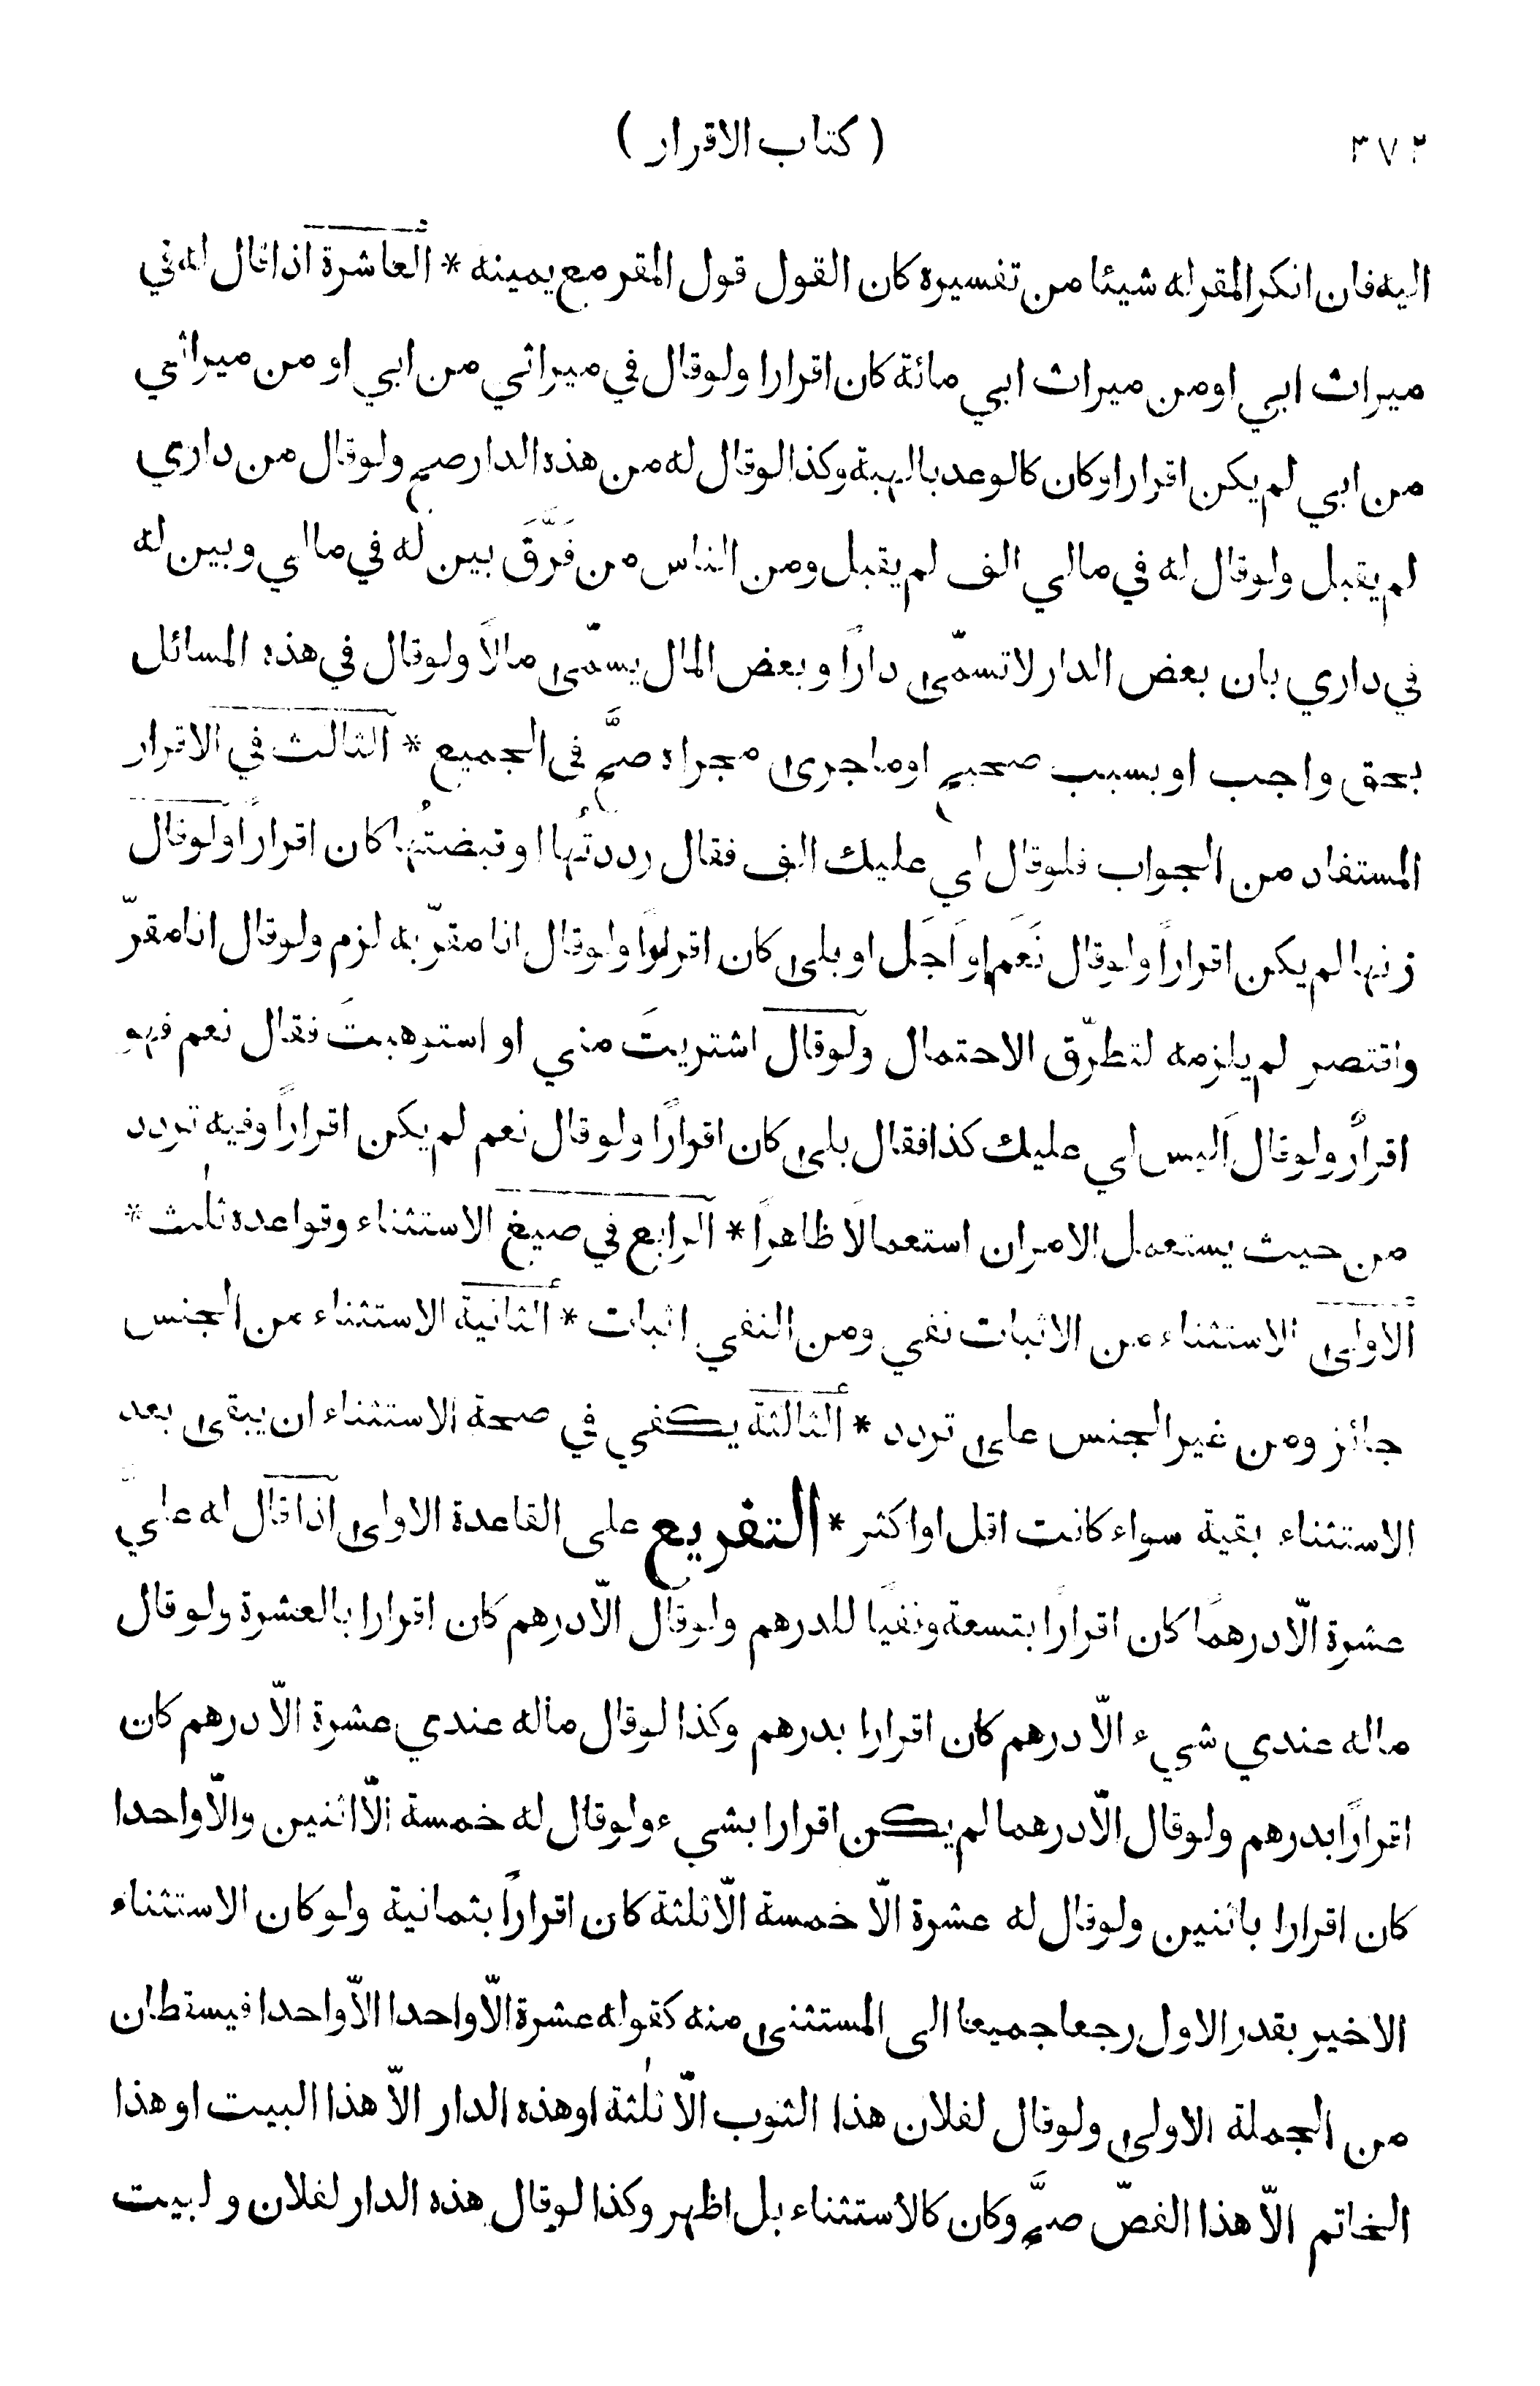 ٣٧٢ ( كتاب الاقرار )
اليه فان انكر المقر له شيئا من تفسيره كان القول قول المقر مع يمينه * العاشرة اذا قال له في
ميراث ابي او من ميراث ابي مائة كان اقرارا ولو قال في ميراثي من ابي او من ميراثي
من ابي لم يكن اقرارا وكان كالوعد بالهبة وكذا لو قال له من هذه الدار صح ولو قال من داري
لم يقبل ولو قال له في مالي الف لم يقبل ومن الناس من فَرَّقَ بين له في مالي وبين له
في داري بان بعض الدار لا تسمّى داراً وبعض المال يسمّى مالاً ولو قال في هذه المسائل
بحق واجب او بسبب صحيح او ما جرى مجراه صحَّ في الجميع * الثالث في الاقرار
المستفاد من الجواب فلو قال لي عليك الف فقال رددتُها او قبضتُها كان اقراراً ولو قال
زنها لم يكن اقراراً ولو قال نَعَم او اَجَل او بلى كان اقراراً ولو قال انا مقرّ به لزم ولو قال انا مقرّ
واقتصر لم يلزمه لتطرّق الاحتمال ولو قال اشتريتَ مني او استوهبتَ فقال نعم فهو
اقرارٌ ولو قال اَليس لي عليك كذا فقال بلى كان اقراراً ولو قال نعم لم يكن اقراراً وفيه تردد
من حيث يستعمل الامران استعمالاً ظاهراً * الرابع في صيغ الاستثناء وقواعده ثلٰث *
الاولى الاستثناء من الاثبات نفي ومن النفي اثبات * الثانية الاستثناء من الجنس
جائز ومن غير الجنس على تردد * الثالثة يكفي في صحة الاستثناء ان يبقى بعد
الاستثناء بقية سواء كانت اقل او اكثر * التفريع على القاعدة الاولى اذا قال له عليَّ
عشرة الّا درهماً كان اقراراً بتسعة ونفياً للدرهم ولو قال الّا درهم كان اقرارا بالعشرة ولو قال
ماله عندي شيء الّا درهم كان اقرارا بدرهم وكذا لو قال ماله عندي عشرة الّا درهم كان
اقراراً بدرهم ولو قال الّا درهما لم يكن اقرارا بشيء ولو قال له خمسة الّا اثنين والّا واحدا
كان اقرارا باثنين ولو قال له عشرة الّا خمسة الّا ثلثة كان اقراراً بثمانية ولو كان الاستثناء
الاخير بقدر الاول رجعا جميعا الى المستثنى منه كقوله عشرة الّا واحدا الّا واحدا فيسقطان
من الجملة الاولى ولو قال لفلان هذا الثوب الّا ثلٰثة او هذه الدار الّا هذا البيت او هذا
الخاتم الّا هذا الفصّ صحَّ وكان كالاستثناء بل اظهر وكذا لو قال هذه الدار لفلان والبيت